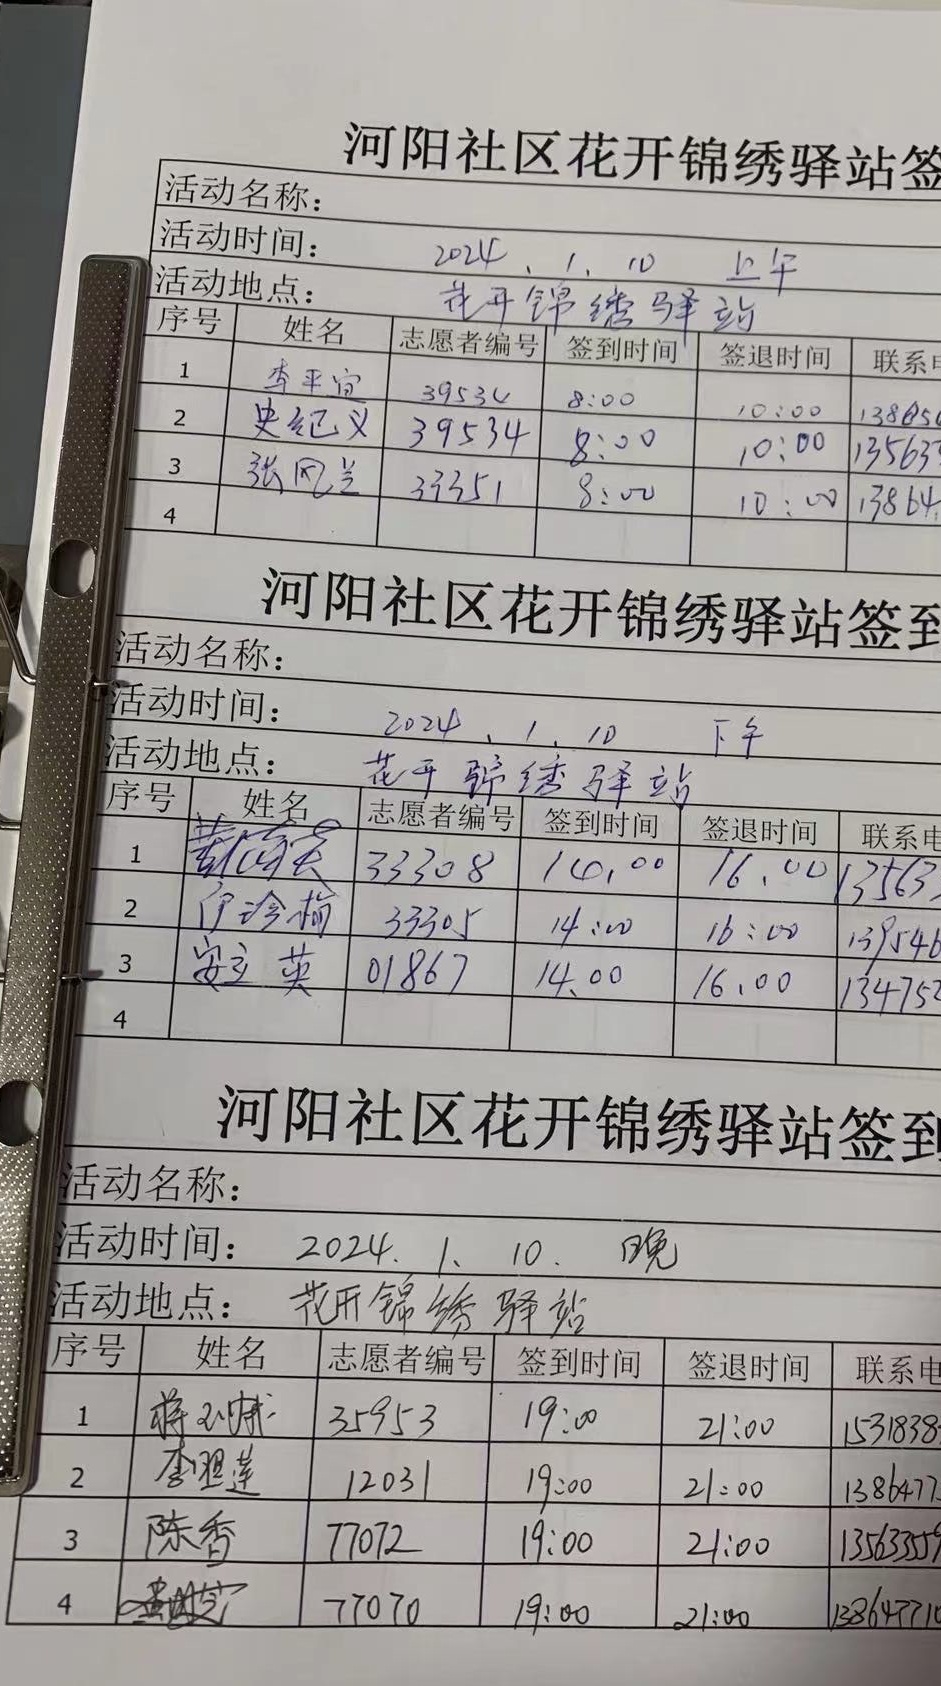 河阳社区花开锦绣驿站签
活动名称：
活动时间： 2024 、1、10 上午
活动地点： 花开锦绣驿站
序号 姓名 志愿者编号 签到时间 签退时间 联系电
1 李平宜 39534 8:00 10:00 138656
2 史纪义 39534 8:00 10:00 135633
3 张风兰 33351 8:00 10:00 13864
4
河阳社区花开锦绣驿站签到
活动名称：
活动时间： 2024 、1、10 下午
活动地点： 花开锦绣驿站
序号 姓名 志愿者编号 签到时间 签退时间 联系电
1 33308 14.00 16.00 13563
2 伊珍梅 33305 14:00 16:00 139546
3 安立英 01867 14.00 16.00 134752
4
河阳社区花开锦绣驿站签到
活动名称：
活动时间： 2024. 1. 10. 晚
活动地点： 花开锦绣驿站
序号 姓名 志愿者编号 签到时间 签退时间 联系电
1 35953 19:00 21:00 1531838
2 李照莲 12031 19:00 21:00 1386477
3 陈香 77072 19:00 21:00 135633559
4 77070 19:00 21:00 138647710